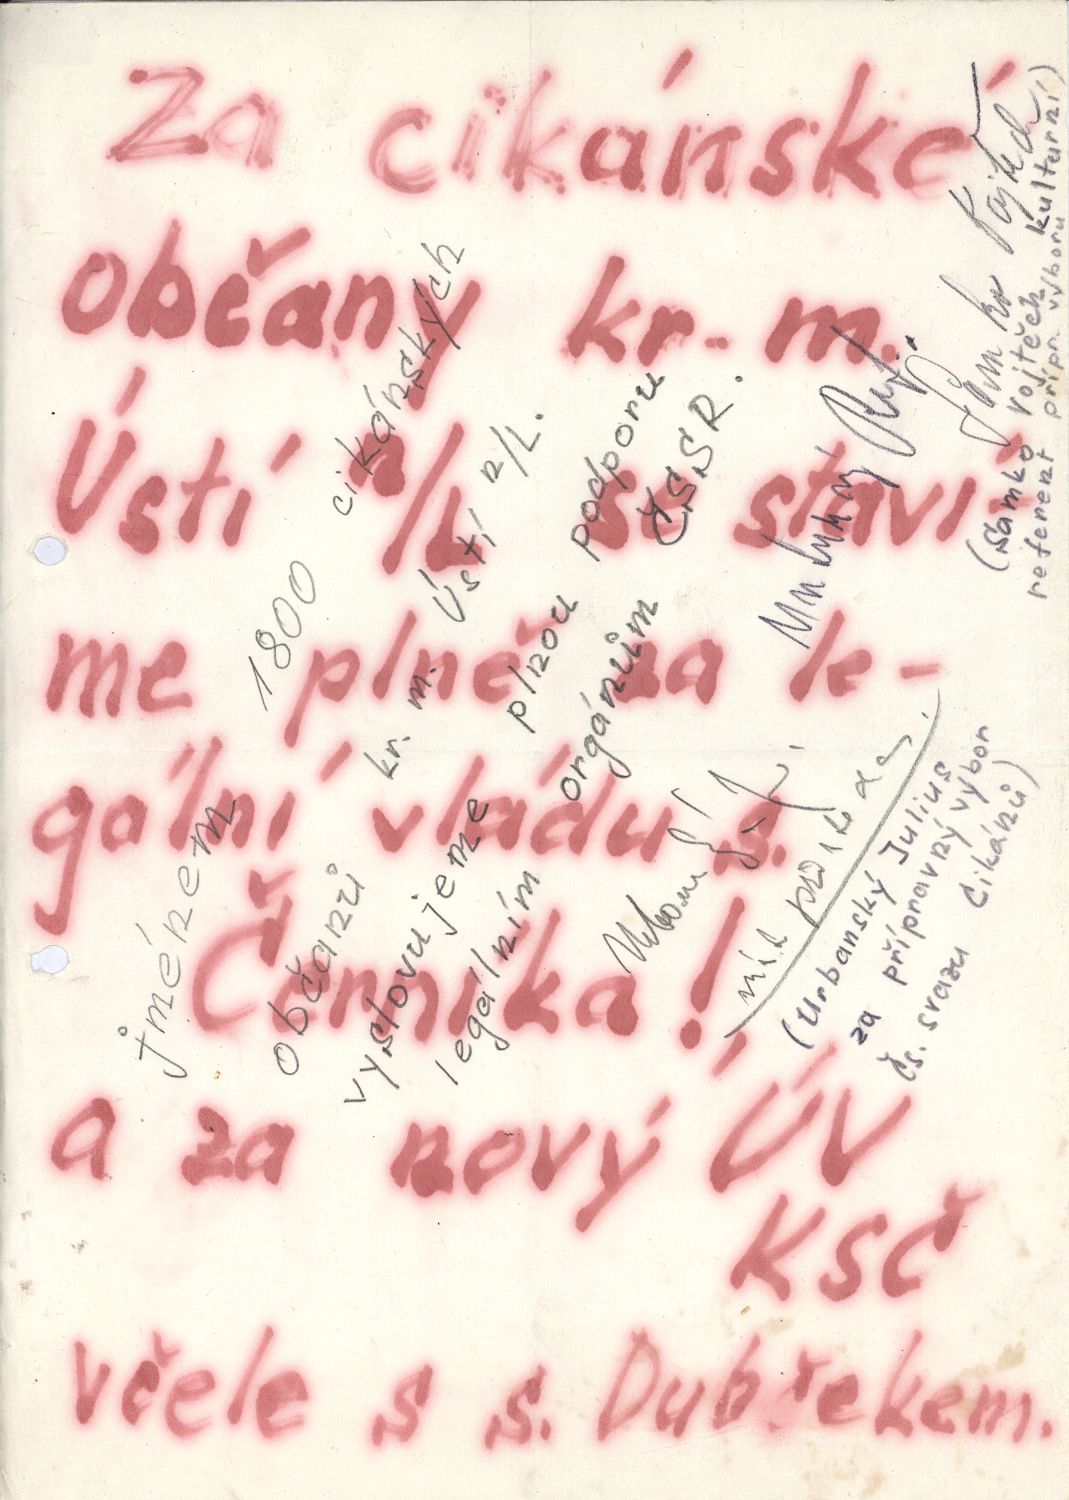 Za cikánské
občany kr. m.
Ústí n/L se staví-
me plně za le-
gální vládu s.
Černíka!
a za nový ÚV
KSČ
včele s s. Dubřekem.
jménem 1800 cikánských
občanů kr. m. Ústí n/L.
vyslovujeme plnou podporu
legálním orgánům ČSSR.
(Urbanský Julius
za přípravný výbor
čs. svazu Cikánů)
(Samko Vojtěch kulturní
referent přípr. výboru)